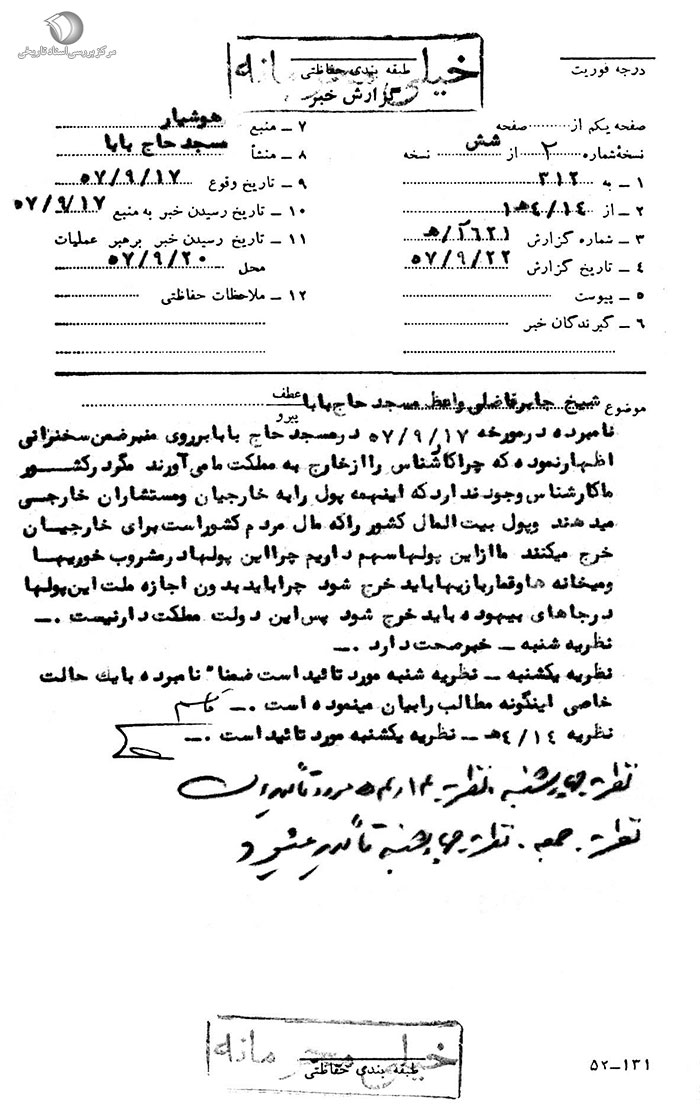 مرکز بررسی اسناد تاریخی
خیلی محرمانه
طبقه بندی حفاظتی
گزارش خبر
درجه فوریت
صفحه یکم از صفحه
نسخه شماره ۲ از شش نسخه
۱ ـ به ۳۱۲
۲ ـ از ۴/۱۴ هـ ۱
۳ ـ شماره گزارش
۴ ـ تاریخ گزارش ۵۷/۹/۲۲
۵ ـ پیوست
۶ ـ گیرندگان خبر
۷ ـ منبع هوشیار
۸ ـ منشأ مسجد حاج بابا
۹ ـ تاریخ وقوع ۵۷/۹/۱۷
۱۰ ـ تاریخ رسیدن خبر به منبع ۵۷/۹/۱۷
۱۱ ـ تاریخ رسیدن خبر برهبر عملیات
محل ۵۷/۹/۲۰
۱۲ ـ ملاحظات حفاظتی
موضوع شیخ جابر فاضلی واعظ مسجد حاج بابا عطف پیرو
نامبرده در مورخه ۵۷/۹/۱۷ در مسجد حاج بابا بر روی منبر ضمن سخنرانی
اظهار نموده که چرا کارشناس را از خارج به مملکت ما می آورند مگر در کشور
ما کارشناس وجود ندارد که اینهمه پول را به خارجیان و مستشاران خارجی
میدهند و پول بیت المال کشور را که مال مردم کشور است برای خارجیان
خرج میکنند ما از این پولها سهم داریم چرا این پولها در مشروب خوریها
و میخانه ها و قمار بازیها باید خرج شود چرا باید بدون اجازه ملت این پولها
در جاهای بیهوده باید خرج شود پس این دولت مملکت دار نیست ۰ـ
نظریه شنبه ـ خبر صحت دارد ۰ـ
نظریه یکشنبه ـ نظریه شنبه مورد تائید است ضمنا" نامبرده با یک حالت
خاصی اینگونه مطالب را بیان مینموده است ۰ـ قاسم
نظریه ۴/۱۴ هـ ـ نظریه یکشنبه مورد تائید است ۰ـ
نظریه چهارشنبه . نظریه ۱۴/۴ ه مورد تأیید است
نظریه جمعه . نظریه چهارشنبه تأیید میشود
خیلی محرمانه
طبقه بندی حفاظتی
۵۲ـ۱۳۱